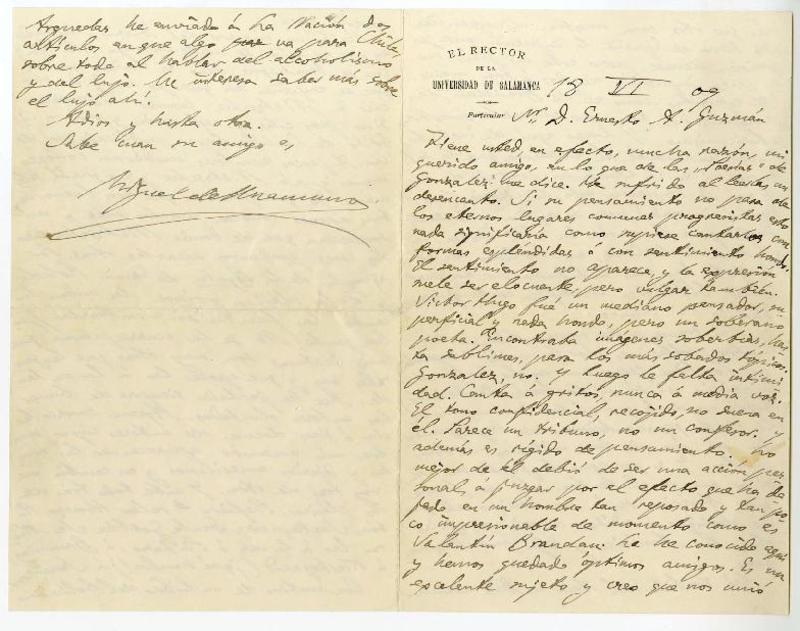 Arguedas he enviado á La Nación dos
artículos en que algo va para Chile,
sobre todo al hablar del alcoholismo
y del lujo. Me interesa saber más sobre
el lujo ahí.
Adios y hasta otra.
Sabe cuan su amigo es
Miguel de Unamuno
EL RECTOR
DE LA
UNIVERSIDAD DE SALAMANCA
Particular
18 VI 09
Sr. D. Ernesto A. Guzmán
Tiene usted en efecto, mucha razón, mi
querido amigo, en lo que de las "Poesías" de
Gonzalez me dice. He sufrido al leerlas un
desencanto. Si su pensamiento no pasa de
los eternos lugares comunes progresistas esto
nada significaría como supiese cantarlos con
formas espléndidas ó con sentimiento hondo.
El sentimiento no aparece, y la expresión
suele ser elocuente, pero vulgar también.
Victor Hugo fué un mediano pensador, su
perficial y nada hondo, pero un soberano
poeta. Encontraba imágenes soberbias, has
ta sublimes, para los más sobados tópicos.
Gonzalez, no. Y luego le falta intimi
dad. Canta á gritos, nunca á media voz.
El tono confidencial, recojido, no suena en
él. Parece un tribuno, no un confesor. Y
además es rígido de pensamiento. Lo
mejor de él debió de ser una acción per
sonal, á juzgar por el efecto que ha de
jado en un hombre tan reposado y tan po
co impresionable de momento como es
Valentín Brandau. Le he conocido aquí
y hemos quedado óptimos amigos. Es un
excelente sujeto y creo que nos unió